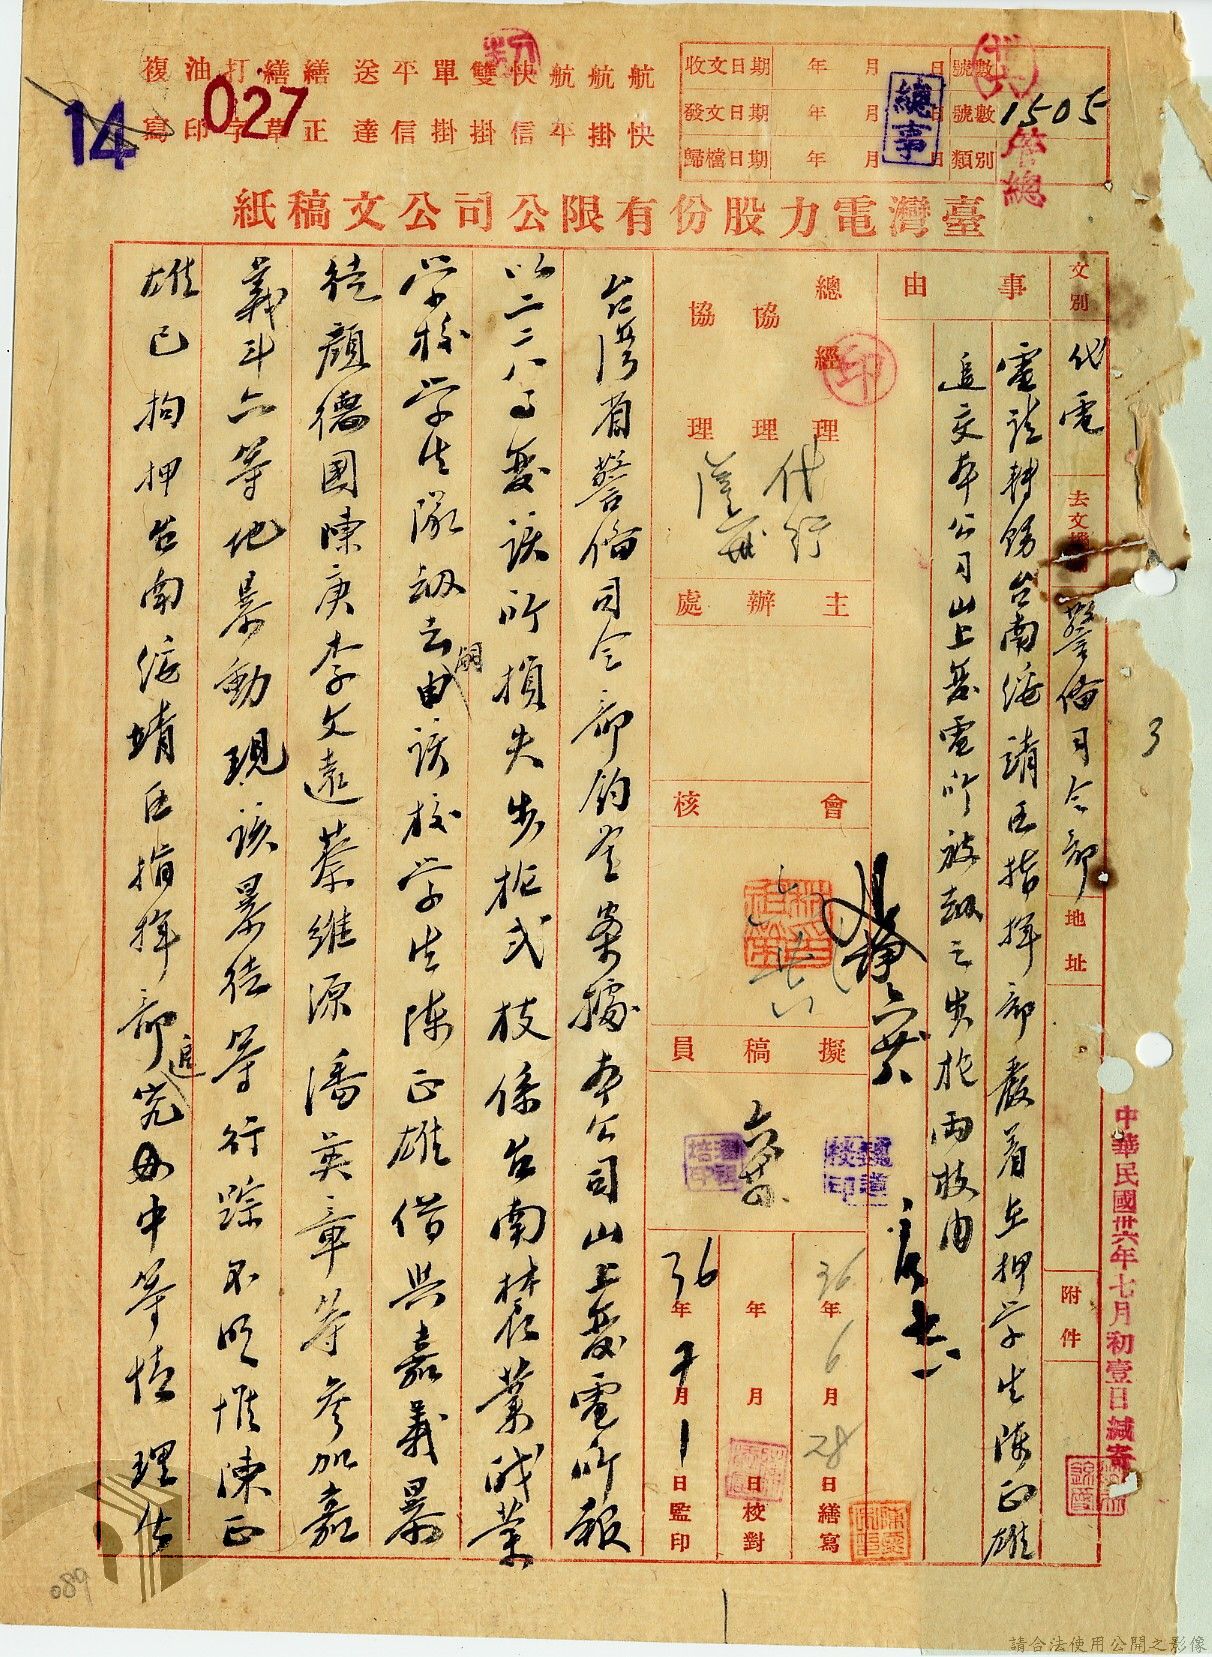 複寫 油印 打字 繕草 繕正 送達 平信 單掛 雙掛 快信 航平 航掛 航快
14
027
收文日期 年 月 日 號數
發文日期 年 月 日 號數 1505
歸檔日期 年 月 日 類別
總事
臺灣電力股份有限公司公文稿紙
文別 代電
警備司令部
地址
附件
事由
電請轉飭台南綏靖區指揮部嚴着在押學生陳正雄
追交本公司山上變電所被劫之步枪兩枝由
總經理
協理
協理
印
代行
主辦處
會核
擬稿員
36年6月28日繕寫
年 月 日校對
36年7月1日監印
台灣省警備司令部鈞鑒案據本公司山上變電所報
以二二八事變該所損失步枪弍枝係台南農業職業
学校学生隊劫去嗣由該校学生陈正雄借與嘉義暴
徒顔德國陳庚李文遠蔡維源潘英章等參加嘉
義斗六等地暴動現該暴徒等行踪不明惟陳正
雄已拘押台南綏靖區指揮部追究中等情理合
中華民國卅六年七月初壹日緘寄
3
089
請合法使用公開之影像